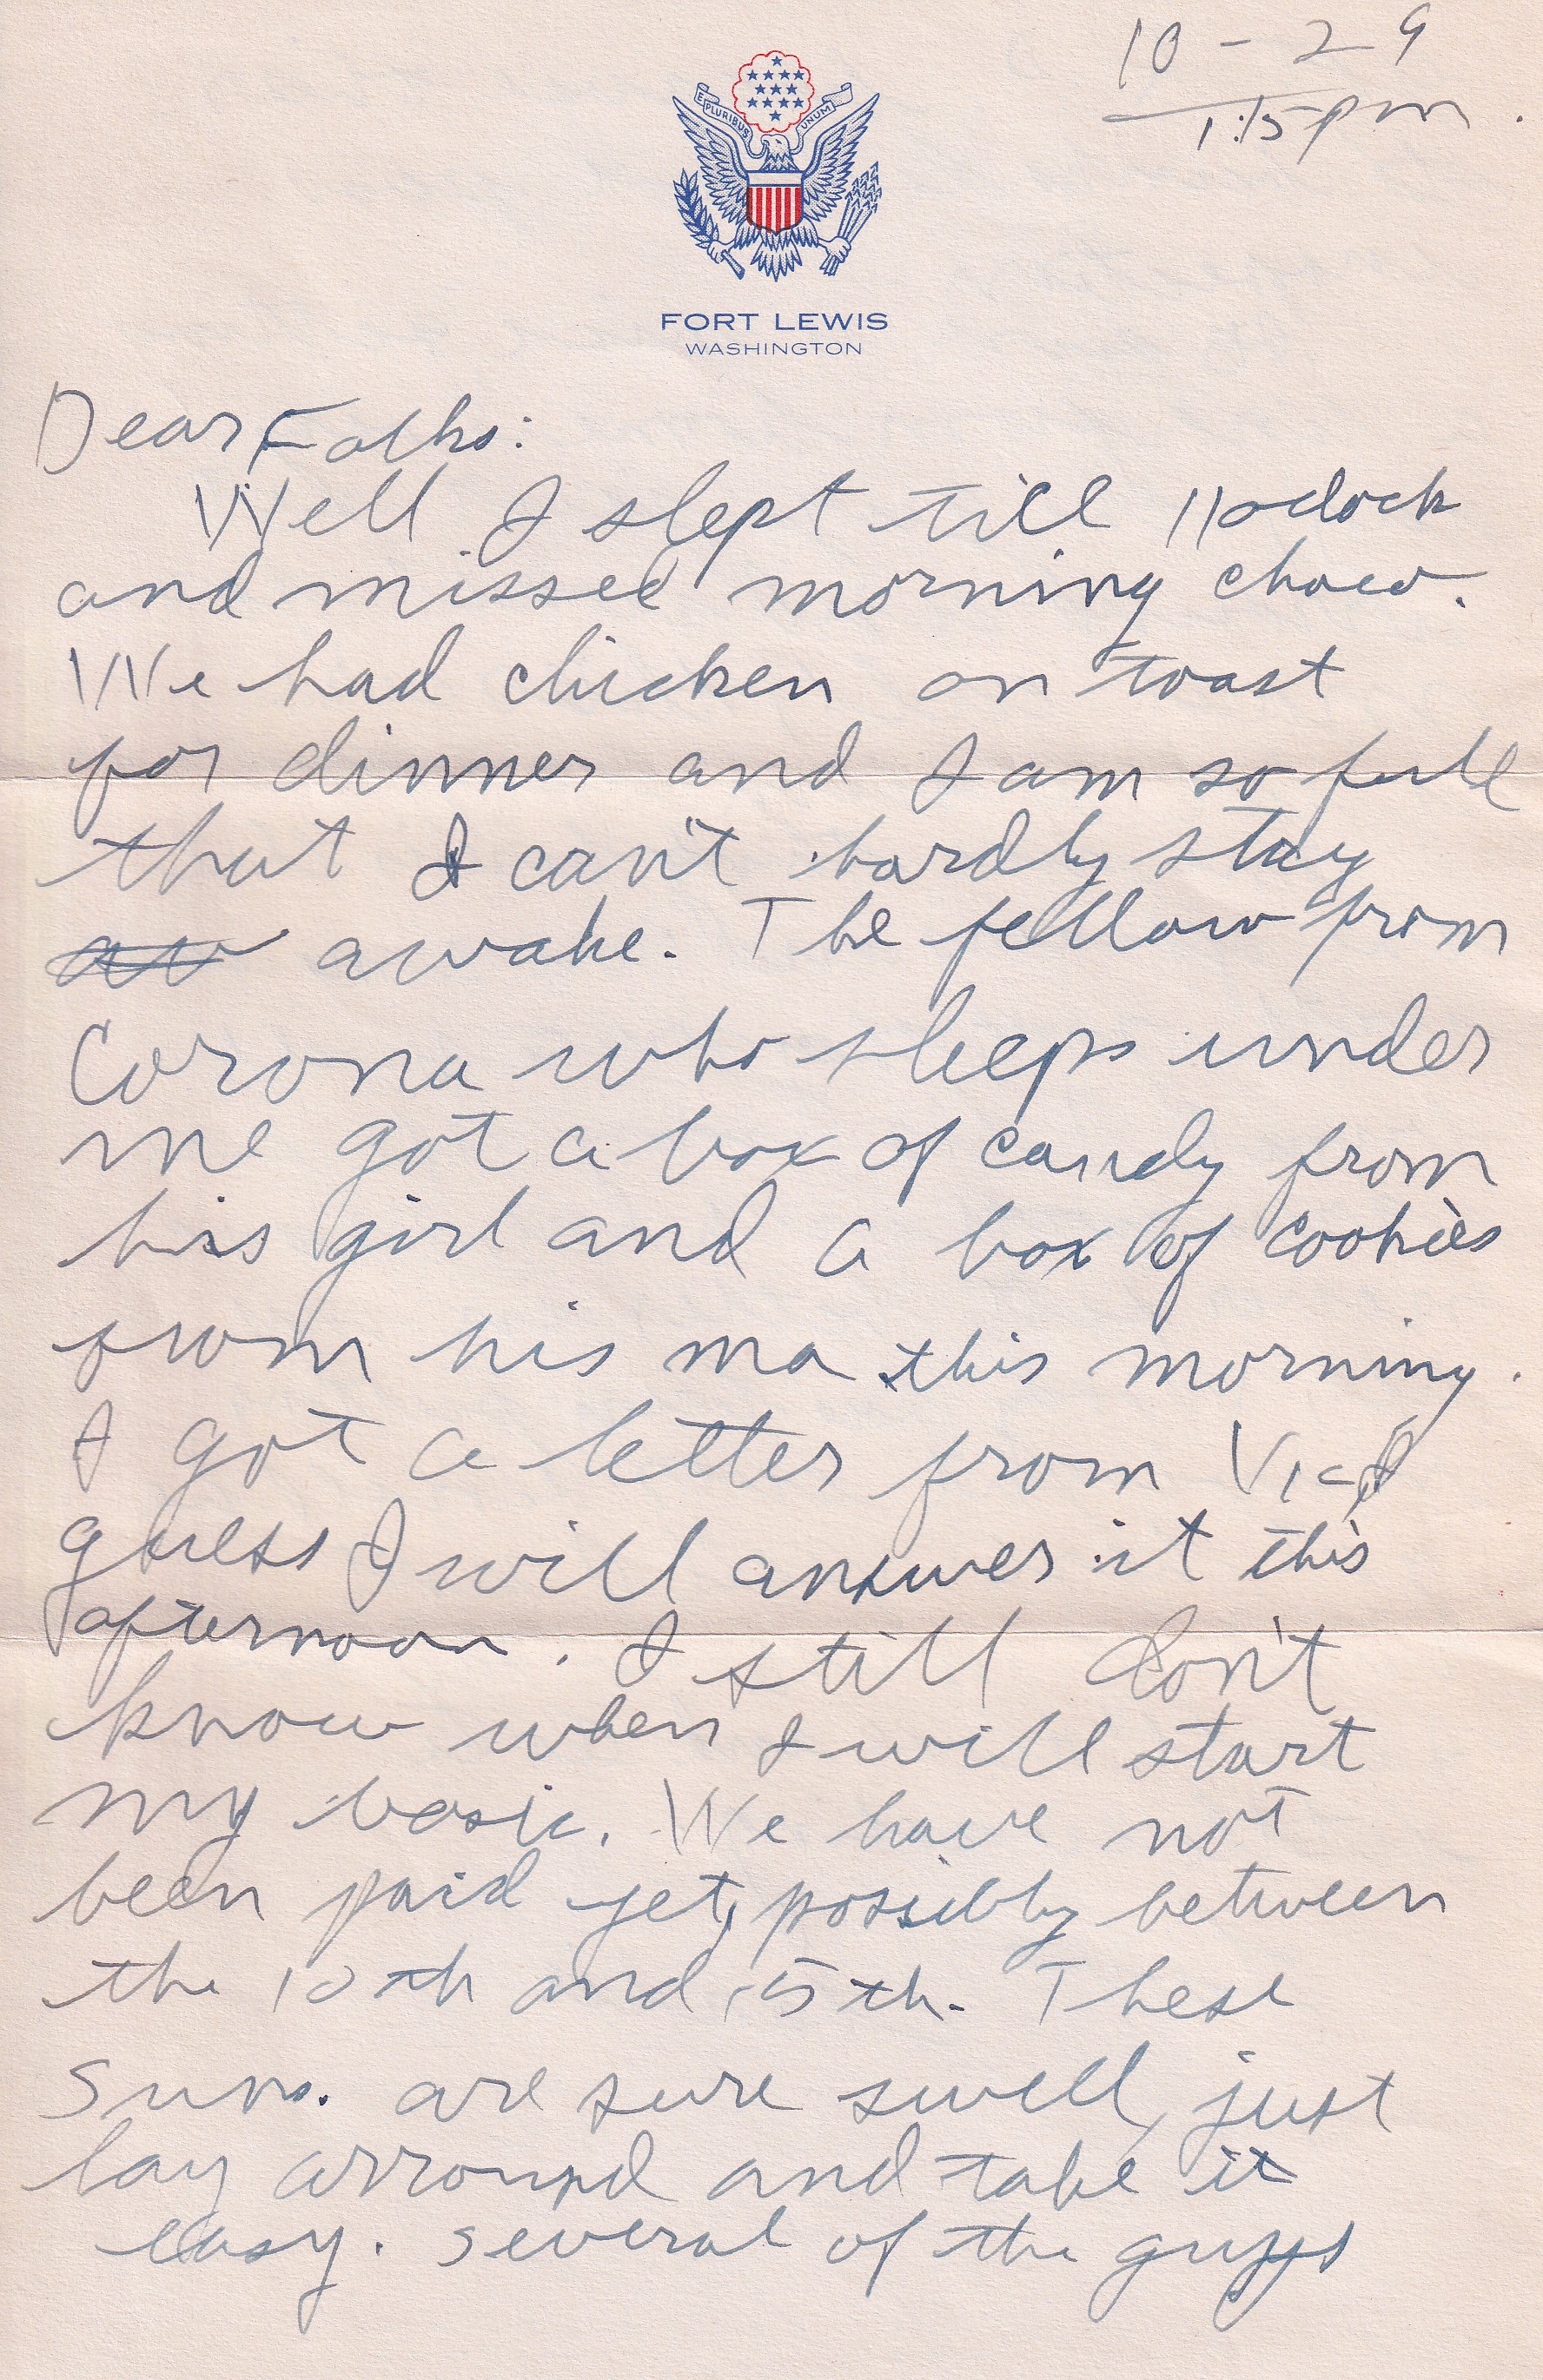 10-29
1:15 pm.
E PLURIBUS UNUM
FORT LEWIS
WASHINGTON
Dear Folks:
Well I slept till 11 oclock
and missed morning chow.
We had chicken on toast
for dinner and I am so full
that I can't hardly stay
aw awake. The fellow from
Corona who sleeps under
me got a box of candy from
his girl and a box of cookies
from his ma this morning.
I got a letter from Vic I
guess I will answer it this
afternoon. I still don't
know when I will start
my basic. We have not
been paid yet, possibly between
the 10th and 15th. These
Suns. are sure swell, just
lay arround and take it
easy. Several of the guys